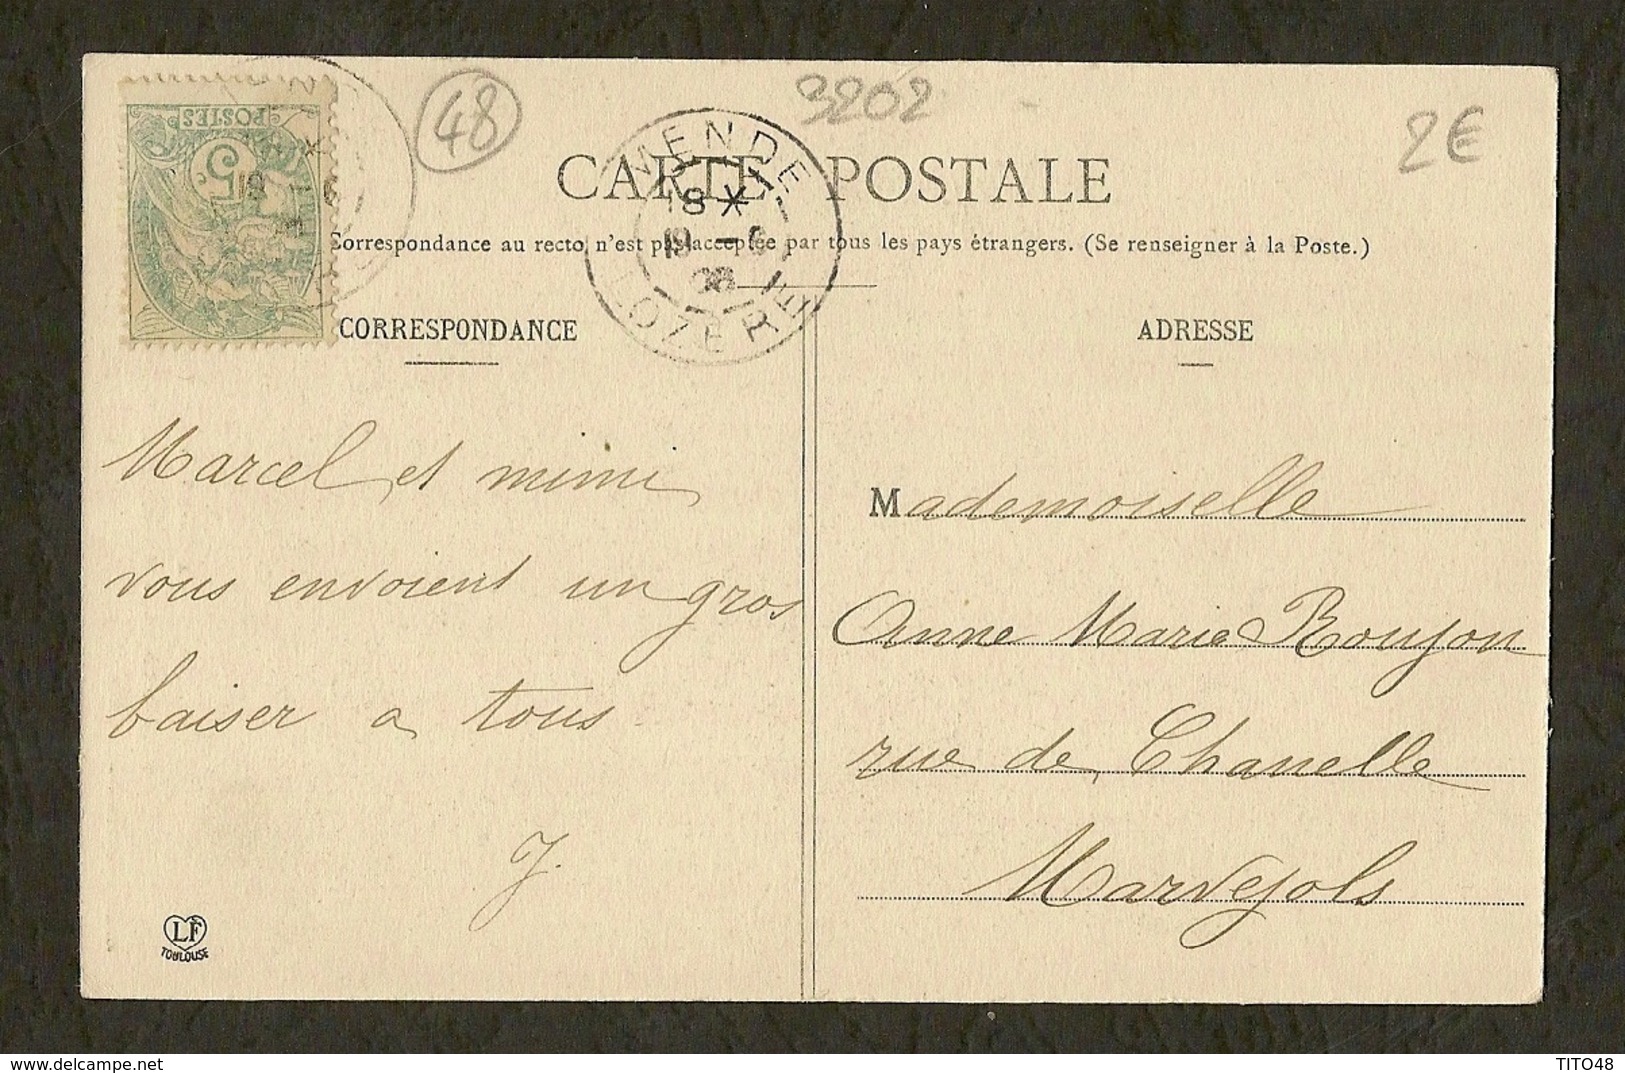 POSTES
5
48
3202
2€
MENDE
18
19 - 6
08
LOZERE
CARTE POSTALE
Correspondance au recto n'est pas acceptée par tous les pays étrangers. (Se renseigner à la Poste.)
CORRESPONDANCE
Marcel et mimi
vous envoient un gros
baiser a tous
J.
LF
TOULOUSE
ADRESSE
Mademoiselle
Anne Marie Roujon
rue de Chanelle
Marvejols
TITO48